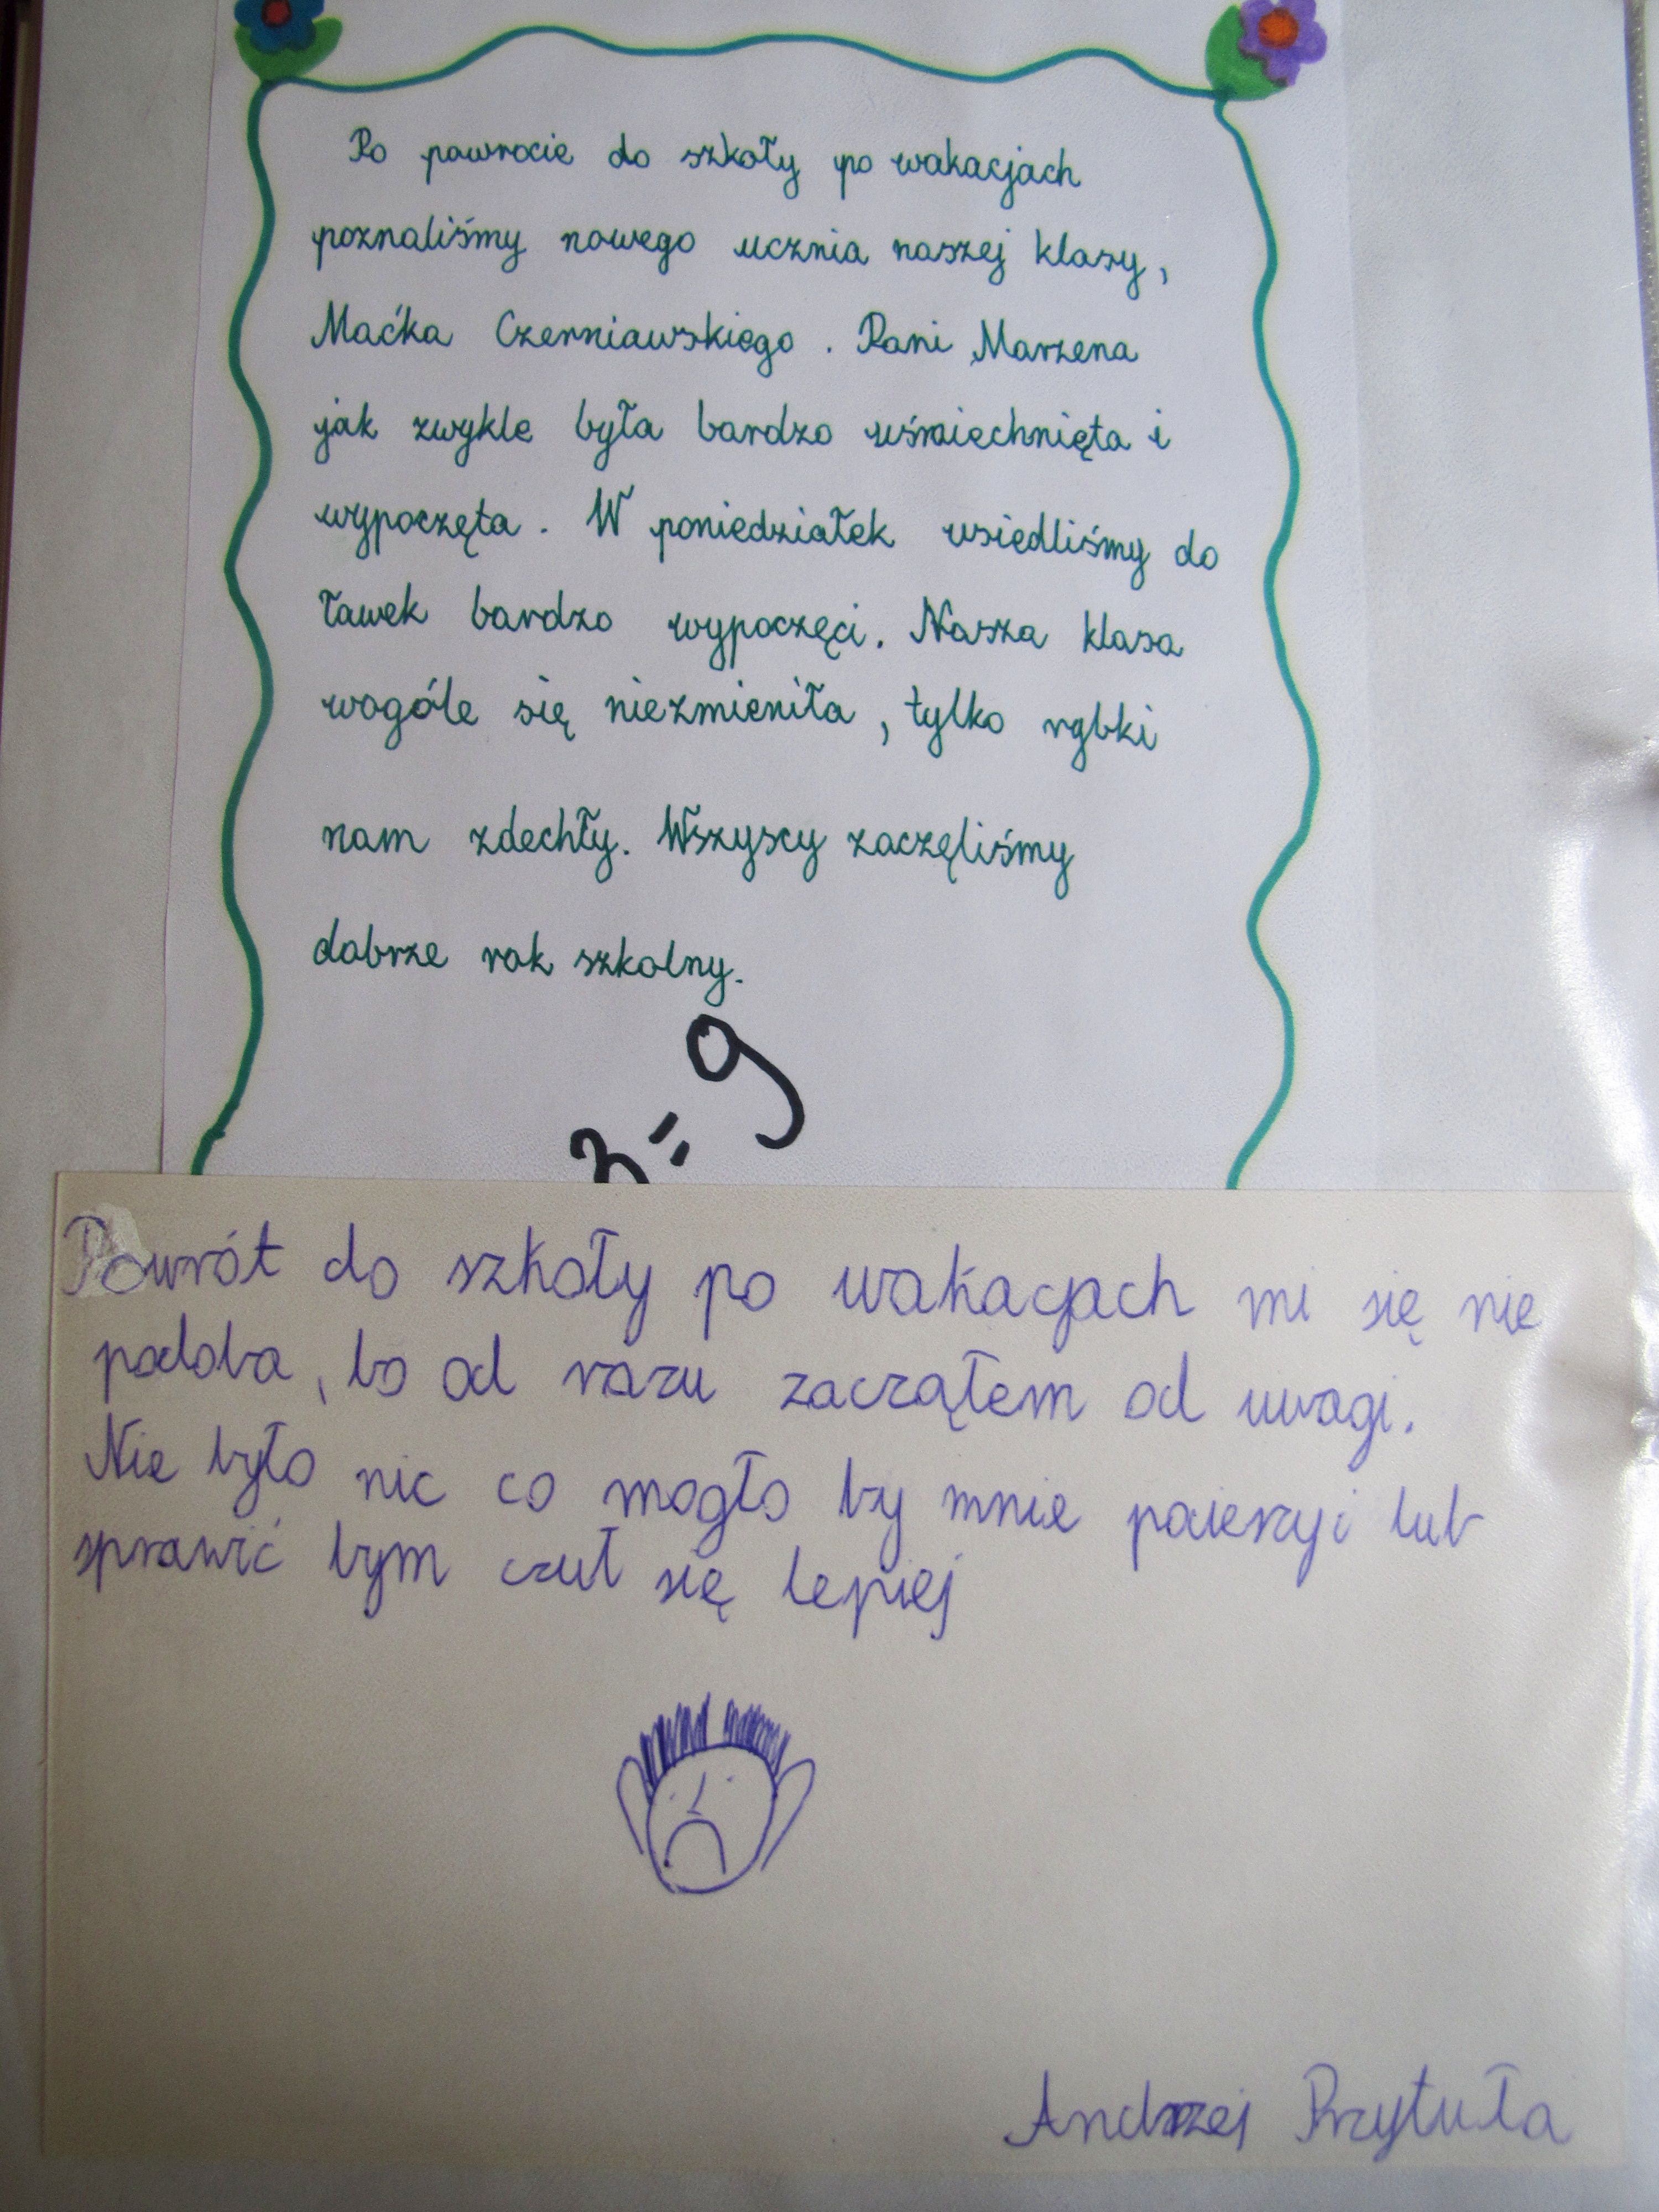 Po powrocie do szkoły po wakacjach
poznaliśmy nowego ucznia naszej klasy,
Maćka Czerniawskiego. Pani Marzena
jak zwykle była bardzo uśmiechnięta i
wypoczęta. W poniedziałek usiedliśmy do
ławek bardzo wypoczęci. Nasza klasa
wogóle się niezmieniła, tylko rybki
nam zdechły. Wszyscy zaczęliśmy
dobrze rok szkolny.
3=9
Powrót do szkoły po wakacjach mi się nie
podoba, bo od razu zaczątem od uwagi.
Nie było nic co mogło by mnie lub
sprawić bym czuł się lepiej
Andrzej Przytuła